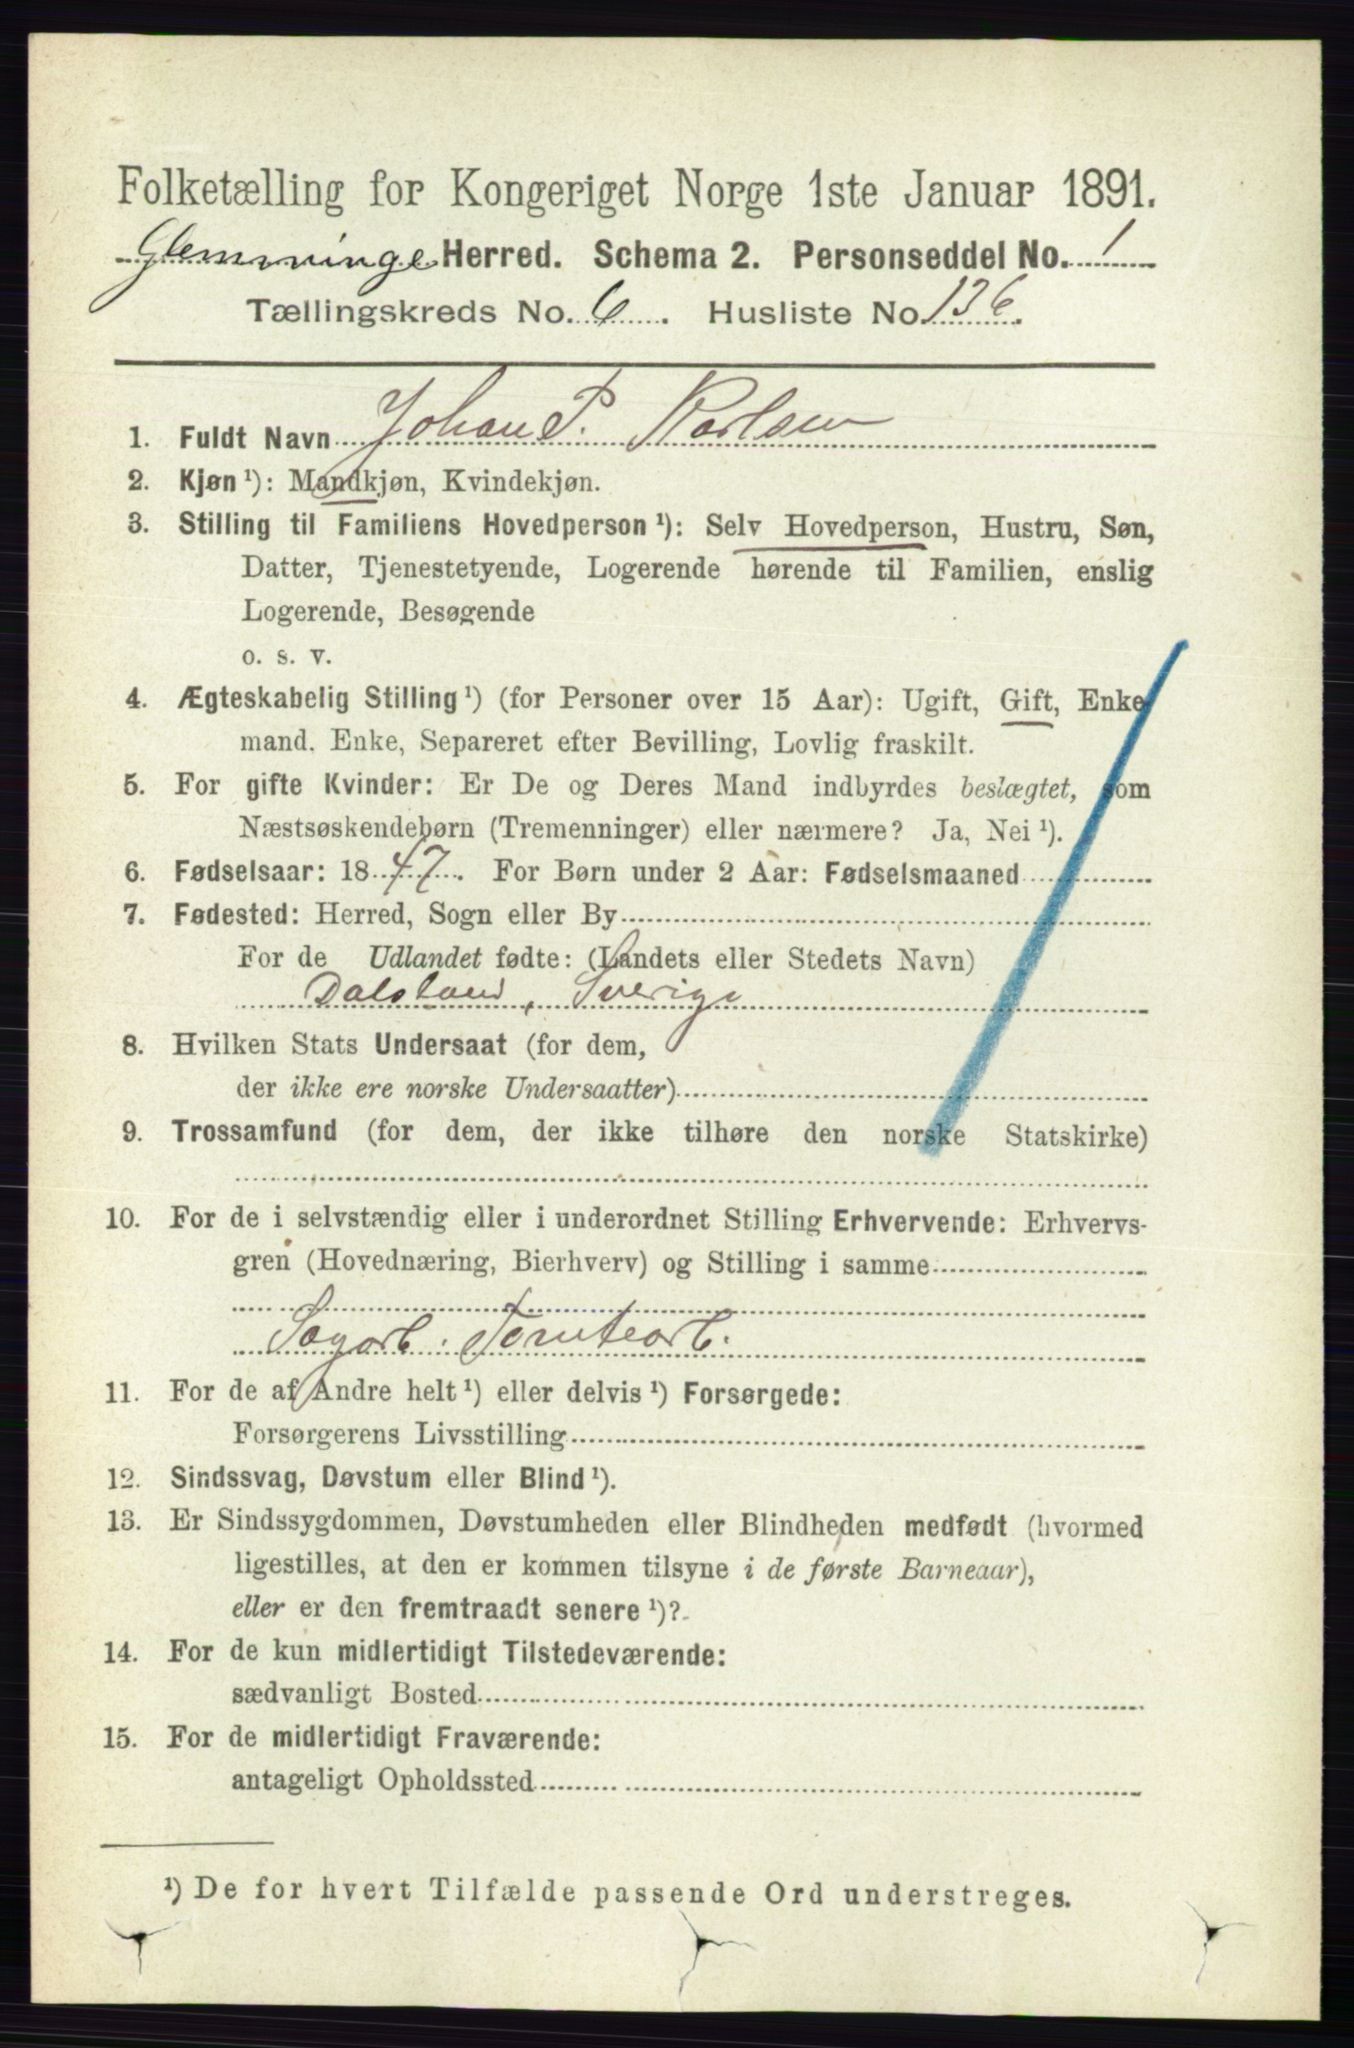 Folketælling for Kongeriget Norge 1ste Januar 1891.
Glemminge Herred. Schema 2. Personseddel No. 1
Tællingskreds No. 6. Husliste No. 136.
1. Fuldt Navn Johan P. Karlsen
2. Kjøn ¹): Mandkjøn, Kvindekjøn.
3. Stilling til Familiens Hovedperson ¹): Selv Hovedperson, Hustru, Søn,
Datter, Tjenestetyende, Logerende hørende til Familien, enslig
Logerende, Besøgende
o. s. v.
4. Ægteskabelig Stilling ¹) (for Personer over 15 Aar): Ugift, Gift, Enke-
mand. Enke, Separeret efter Bevilling, Lovlig fraskilt.
5. For gifte Kvinder: Er De og Deres Mand indbyrdes beslægtet, som
Næstsøskendebørn (Tremenninger) eller nærmere? Ja, Nei ¹).
6. Fødselsaar: 1847. For Børn under 2 Aar: Fødselsmaaned
7. Fødested: Herred, Sogn eller By
For de Udlandet fødte: (Landets eller Stedets Navn)
Dalsland, Sverige
8. Hvilken Stats Undersaat (for dem,
der ikke ere norske Undersaatter)
9. Trossamfund (for dem, der ikke tilhøre den norske Statskirke)
10. For de i selvstændig eller i underordnet Stilling Erhvervende: Erhvervs-
gren (Hovednæring, Bierhverv) og Stilling i samme
Sagarb. Tomtearb.
11. For de af Andre helt ¹) eller delvis ¹) Forsørgede:
Forsørgerens Livsstilling
12. Sindssvag, Døvstum eller Blind ¹).
13. Er Sindssygdommen, Døvstumheden eller Blindheden medfødt (hvormed
ligestilles, at den er kommen tilsyne i de første Barneaar),
eller er den fremtraadt senere ¹)?
14. For de kun midlertidigt Tilstedeværende:
sædvanligt Bosted
15. For de midlertidigt Fraværende:
antageligt Opholdssted
¹) De for hvert Tilfælde passende Ord understreges.